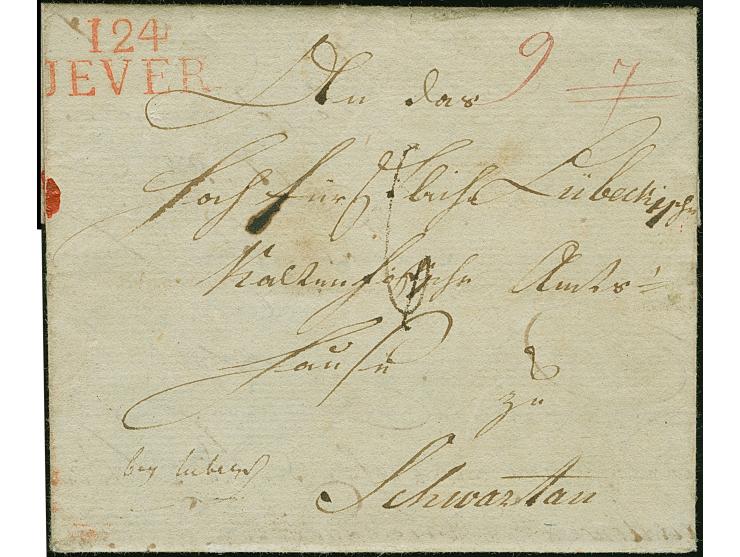 124
JEVER
9 7
An das
Hochfürstliche Lübeckische
Kaltenhofische Amts-
Hause
zu
Schwartau
bey Lübeck